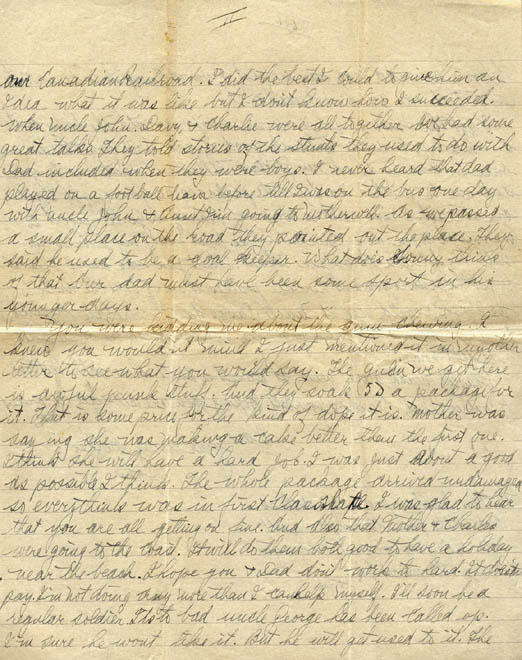 II
our Canadian Railroad. I did the best I could to give him an
Idea what it was like but I don't know how I succeeded.
When Uncle John. Davy & Charlie were all together we had some
great talks. They told stories of the stunts they used to do with
Dad included when they were boys. I never heard that dad
played on a football team before till I was on the bus one day
with uncle John & Aunt going to Motherwell. As we passed
a small place on the road they pointed out the place. They
said he used to be a goal keeper. What does think
of that Our dad must have been some sport in his
younger days.
You were me about the gum chewing. I
knew you would. I just mentioned it in
letter to see what you would say. The gum we get here
is awful punk stuff. And they soak 5D a package for
it. That is some price for the kind of dope it is. Mother was
saying she was making a cake better than the first one.
I think she will have a hard job. It was just about a good
as possible I think. The whole package arrived undamaged
so everything was in first Class. I was glad to hear
that you are all getting on fine. And also that Mother & Charles
were going to the coast. It will do them both good to have a holiday
near the beach. I hope you & Dad don't work to hard. It doesn't
pay. I'm not doing any more than I can help myself. I'll soon be a
regular soldier. It's to bad uncle George has been called up.
I'm sure he wont like it. But he will get used to it. The